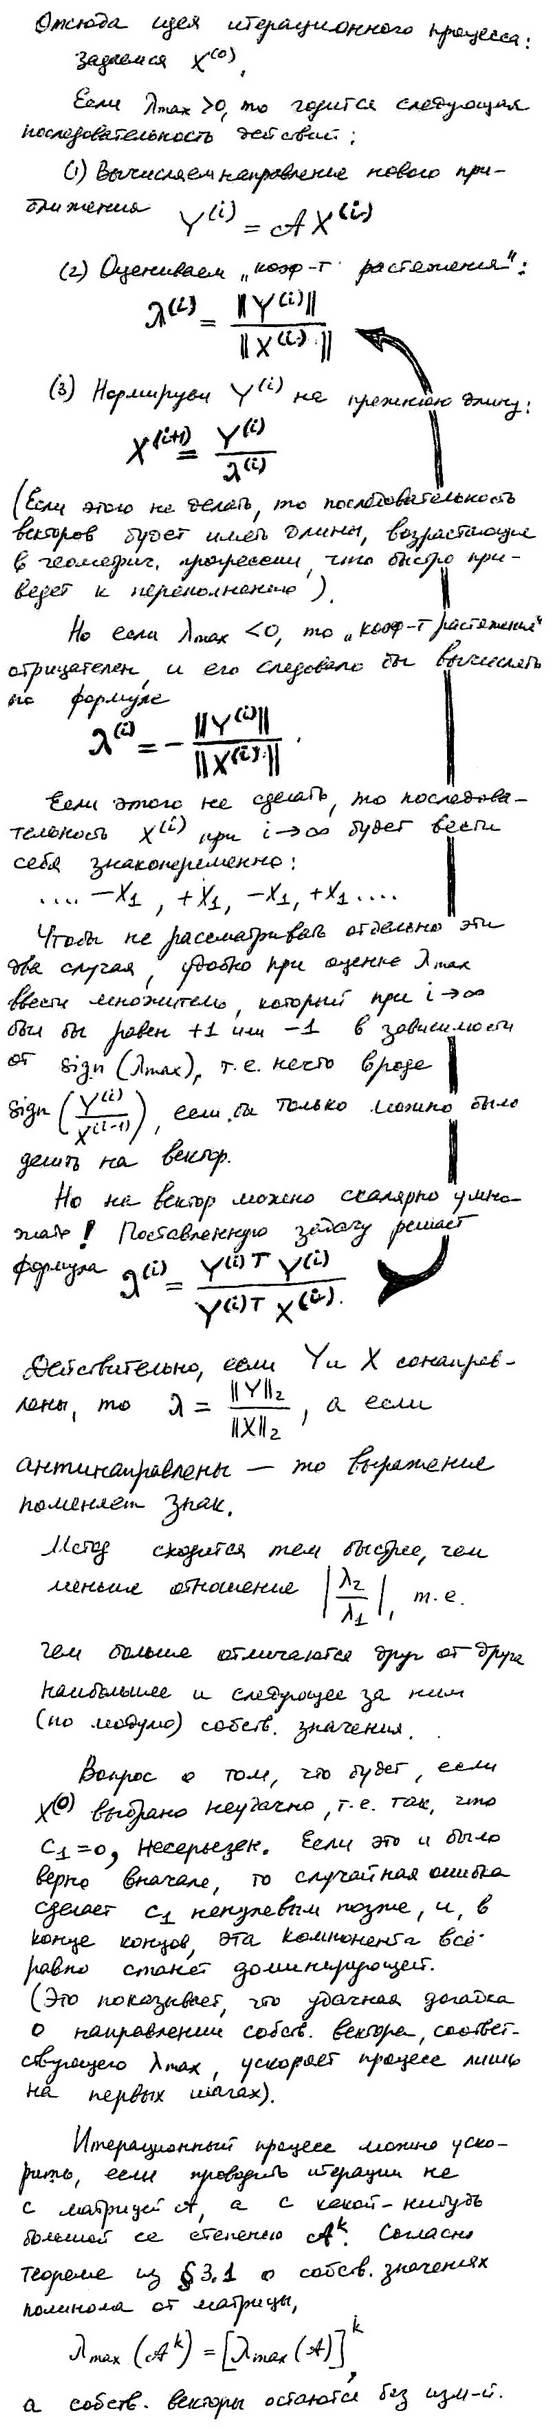 Отсюда идея итерационного процесса:
задаемся X^(0).
Если λmax >0, то годится следующая
последовательность действий:
(1) Вычисляем направление нового при-
ближения Y^(i) = A X^(i)
(2) Оцениваем „коэф-т растяжения":
λ^(i) = ||Y^(i)|| / ||X^(i)||
(3) Нормируем Y^(i) на прежнюю длину:
X^(i+1) = Y^(i) / λ^(i)
(Если этого не делать, то последовательность
векторов будет иметь длины, возрастающие
в геометрич. прогрессии, что быстро при-
ведет к переполнению).
Но если λmax <0, то „коэф-т растяжения"
отрицателен, и его следовало бы вычислять
по формуле
λ^(i) = - ||Y^(i)|| / ||X^(i)||.
Если этого не сделать, то последова-
тельность X^(i) при i→∞ будет вести
себя знакопеременно:
.... −X₁, +X₁, −X₁, +X₁ ....
Чтобы не рассматривать отдельно эти
два случая, удобно при оценке λmax
ввести множитель, который при i→∞
был бы равен +1 или −1 в зависимости
от sign (λmax), т.е. нечто вроде
sign (Y^(i) / X^(i-1)), если бы только можно было
делить на вектор.
Но на вектор можно скалярно умно-
жать! Поставленную задачу решает
формула λ^(i) = Y^(i)T Y^(i) / Y^(i)T X^(i).
Действительно, если Y и X сонаправ-
лены, то λ = ||Y||₂ / ||X||₂, а если
антинаправлены — то выражение
поменяет знак.
Метод сходится тем быстрее, чем
меньше отношение |λ₂ / λ₁|, т.е.
чем больше отличаются друг от друга
наибольшее и следующее за ним
(по модулю) собств. значения.
Вопрос о том, что будет, если
X^(0) выбрано неудачно, т.е. так, что
c₁=0, несерьезен. Если это и было
верно вначале, то случайная ошибка
сделает c₁ ненулевым позже, и, в
конце концов, эта компонента всё
равно станет доминирующей.
(Это показывает, что удачная догадка
о направлении собств. вектора, соответ-
ствующего λmax, ускоряет процесс лишь
на первых шагах).
Итерационный процесс можно уско-
рить, если проводить итерации не
с матрицей A, а с какой-нибудь
большой ее степенью A^k. Согласно
теореме из §3.1 о собств. значениях
полинома от матрицы,
λmax (A^k) = [λmax (A)]^k,
а собств. векторы остаются без изм-й.